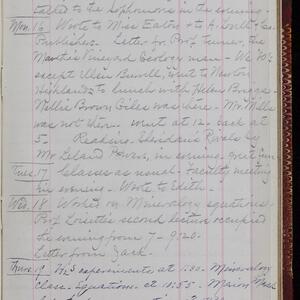 talked to the Sophomores in the evening.
Mon. 16 Wrote to Miss Eaton & to A. Lovell & Co.
Publishers. Letter fr. Prof. Turner, the
Martha's Vineyard Geology man. We 70's
except Ellen Burrell, went to Newton
Highlands to lunch with Helen Briggs.
Nellie Brown Gilles was there. Mr. Mills
was not there. Went at 12. back at
5. Reading, Sheridan's Rivals by
Mr. Leland Powers, in evening. Great fun.
Tues. 17 Classes as usual. Faculty meeting
in evening. Wrote to Edith.
Wed. 18 Worked on Mineralogy equations.
Prof. second lecture occupied
the evening from 7 - 9.20.
Letter from Jack.
Thurs. 19 experiments at 1.30. Mineralogy
class. Equations. at 10.55.